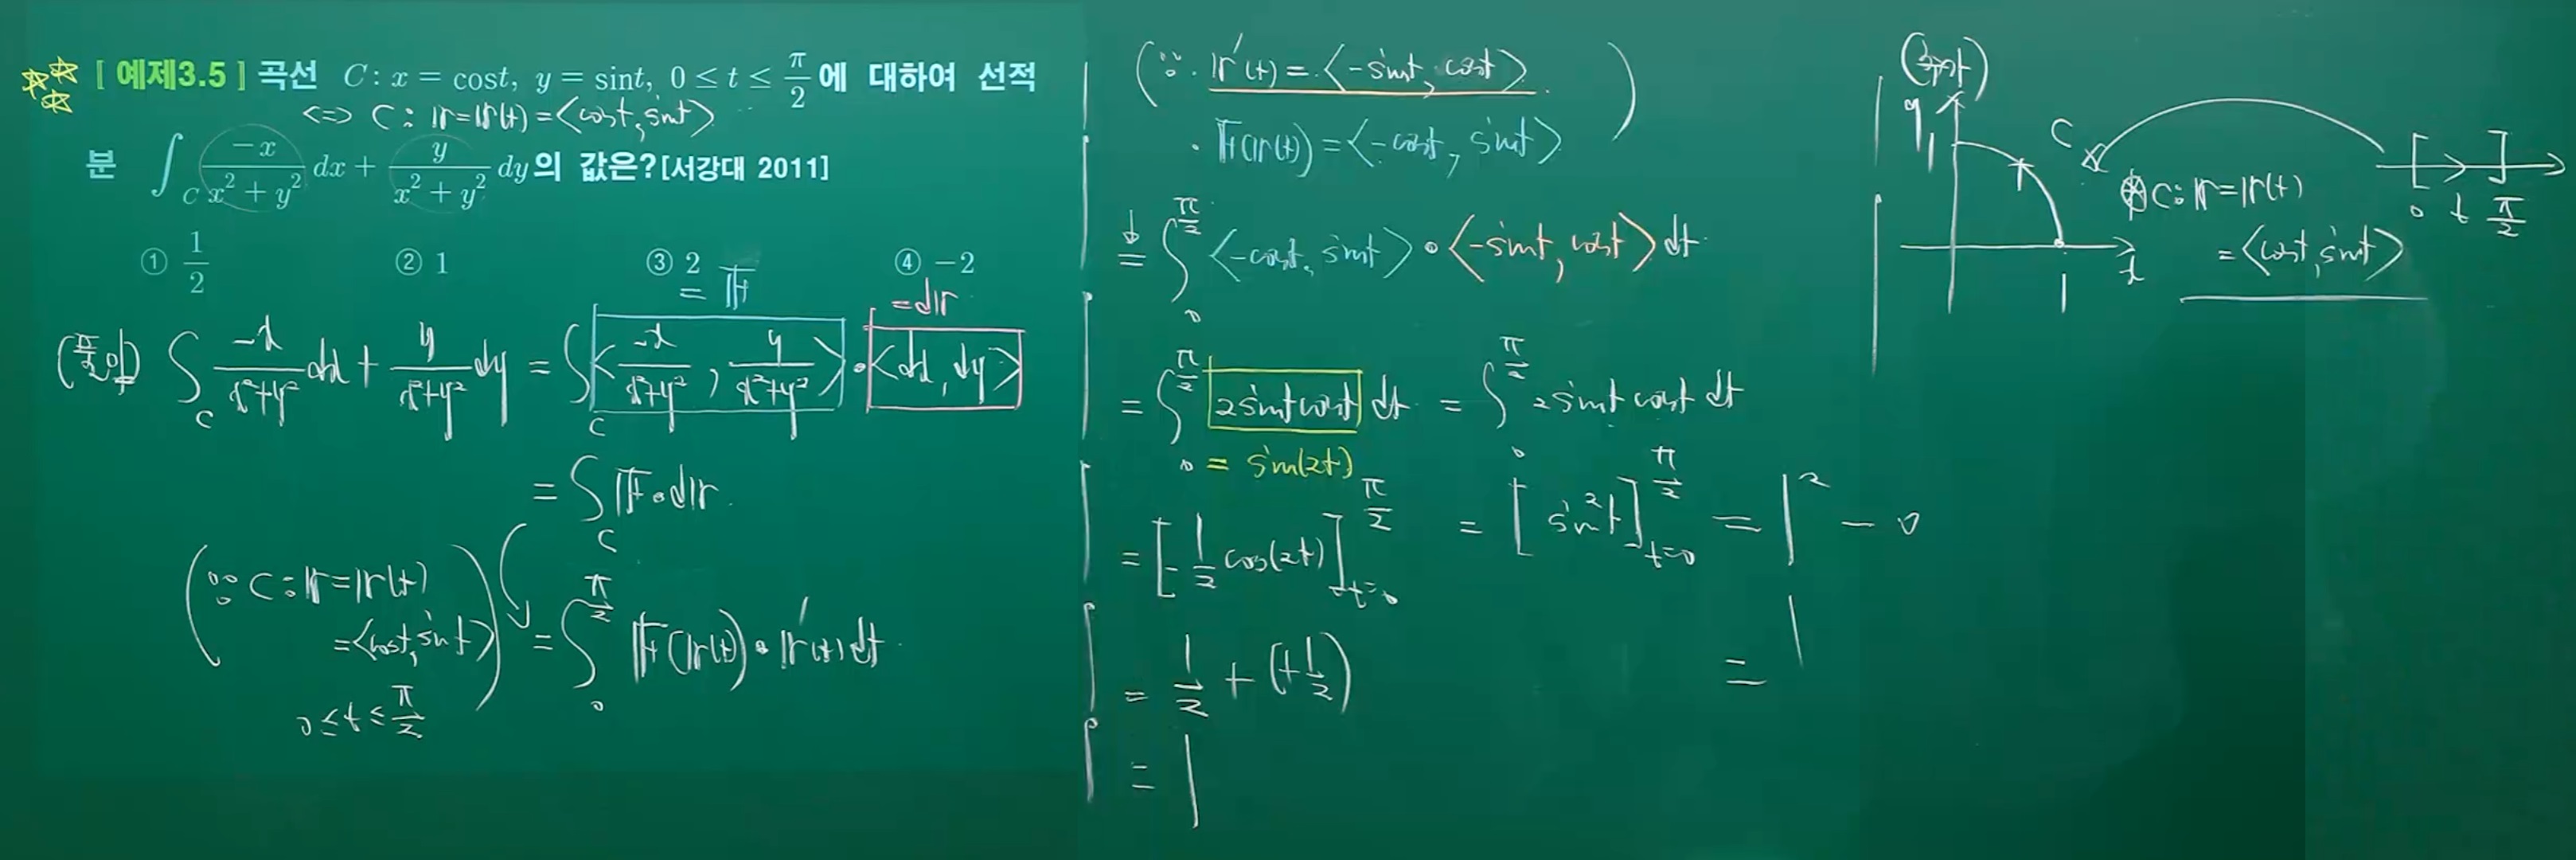 [ 예제3.5 ] 곡선 C : x = cost, y = sint, 0 ≤ t ≤ π/2 에 대하여 선적
⇔ C : r = r(t) = <cost, sint>
분 ∫_C -x/(x²+y²) dx + y/(x²+y²) dy 의 값은? [서강대 2011]
① 1/2 ② 1 ③ 2 ④ -2
= F
= dr
∫_C -x/(x²+y²) dx + y/(x²+y²) dy = ∫_C < -x/(x²+y²) , y/(x²+y²) > • <dx, dy>
= ∫_C F • dr
(∵ C : r = r(t)
= <cost, sint>
0 ≤ t ≤ π/2)
= ∫_0^(π/2) F(r(t)) • r'(t) dt
(∵ · r'(t) = <-sint, cost>
· F(r(t)) = <-cost, sint>)
= ∫_0^(π/2) <-cost, sint> • <-sint, cost> dt
= ∫_0^(π/2) 2sint cost dt = ∫_0^(π/2) 2sint cost dt
= sin(2t)
= [-1/2 cos(2t)]_(t=0)^(π/2) = [sin²t]_(t=0)^(π/2) = 1² - 0
= 1/2 + (+1/2) = 1
= 1
y
1
C
x
1
※ C : r = r(t)
= <cost, sint>
0 t π/2